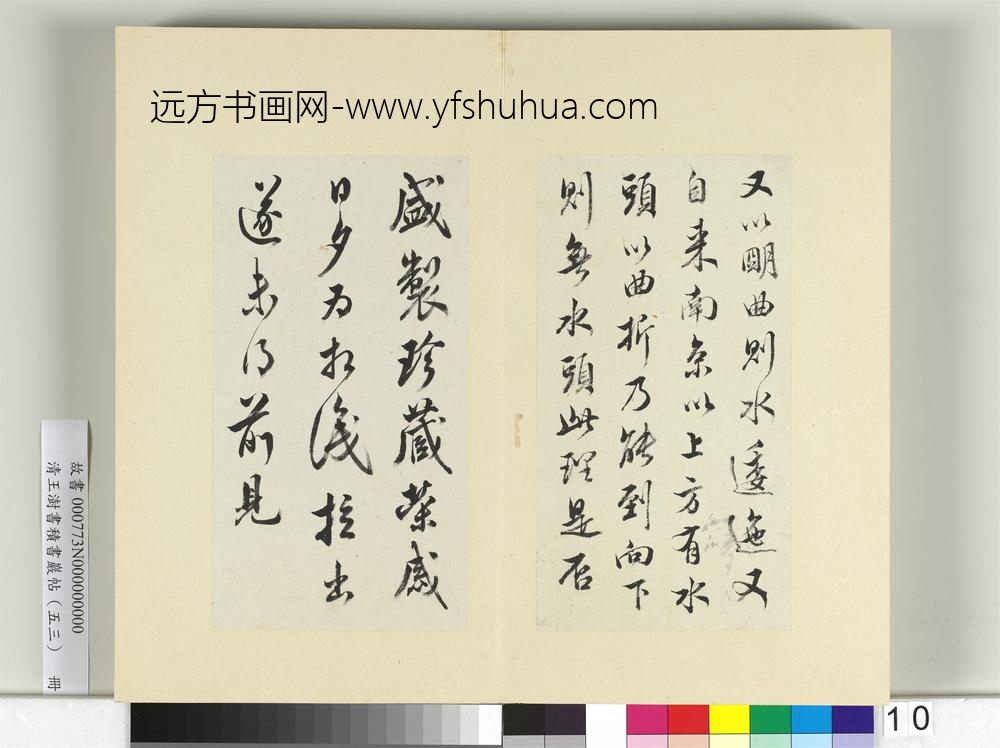 远方书画网-www.yfshuhua.com
又以明曲則水逶迤又
自来南京以上方有水
頭以曲折乃能到向下
則無水頭此理是否
盛製珍藏榮感
日夕为
拉出
遂未得前見
故書 000773N000000000
清王澍書積書巖帖（五三） 冊
10